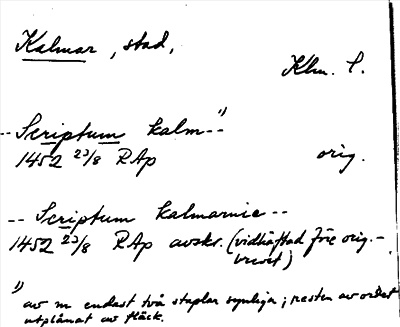 Kalmar, stad,
Klm. l.
-- Scriptum kalm-- 1)
1452 23/8 RAp orig.
-- Scriptum kalmarnie --
1452 23/8 RAp avskr. (vidhäftad före orig.-
brevet)
1) av m endast två staplar synliga; resten av ordet
utplånat av fläck.